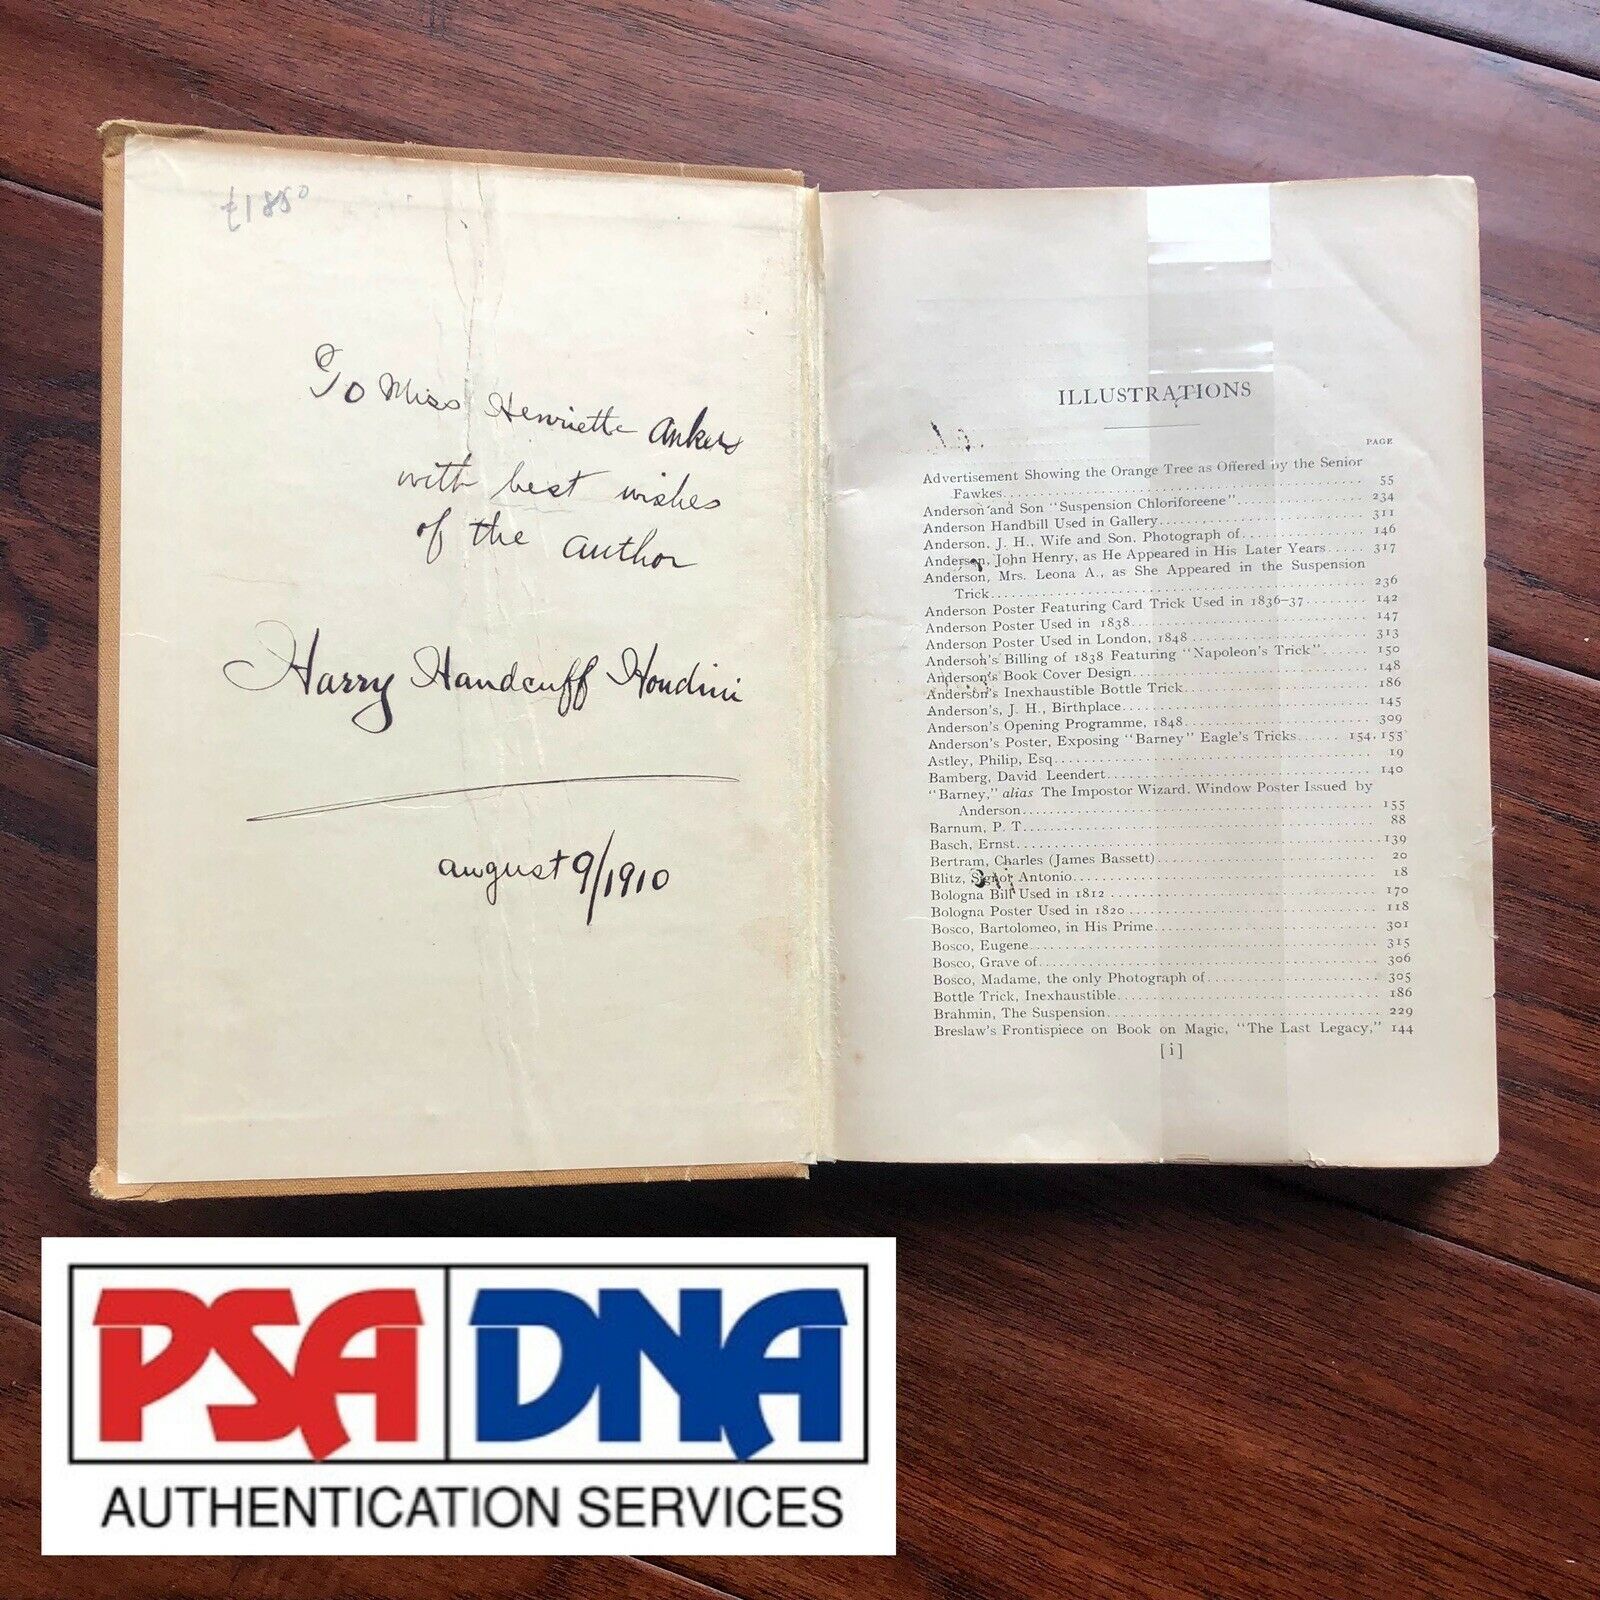 £1850
To Miss Henriette Ankers
with best wishes
of the author
Harry Handcuff Houdini
august 9/1910
ILLUSTRATIONS
PAGE
Advertisement Showing the Orange Tree as Offered by the Senior
Fawkes 55
Anderson and Son "Suspension Chloriforeene" 234
Anderson Handbill Used in Gallery 311
Anderson, J. H., Wife and Son, Photograph of 146
Anderson, John Henry, as He Appeared in His Later Years 317
Anderson, Mrs. Leona A., as She Appeared in the Suspension
Trick 236
Anderson Poster Featuring Card Trick Used in 1836-37 142
Anderson Poster Used in 1838 147
Anderson Poster Used in London, 1848 313
Anderson's Billing of 1838 Featuring "Napoleon's Trick" 150
Anderson's Book Cover Design 148
Anderson's Inexhaustible Bottle Trick 186
Anderson's, J. H., Birthplace 145
Anderson's Opening Programme, 1848 309
Anderson's Poster, Exposing "Barney" Eagle's Tricks 154, 155
Astley, Philip, Esq 19
Bamberg, David Leendert 140
"Barney," alias The Impostor Wizard. Window Poster Issued by
Anderson 155
Barnum, P. T. 88
Basch, Ernst 139
Bertram, Charles (James Bassett) 20
Blitz, Signor Antonio 18
Bologna Bill Used in 1812 170
Bologna Poster Used in 1820 118
Bosco, Bartolomeo, in His Prime 301
Bosco, Eugene 315
Bosco, Grave of 306
Bosco, Madame, the only Photograph of 305
Bottle Trick, Inexhaustible 186
Brahmin, The Suspension 229
Breslaw's Frontispiece on Book on Magic, "The Last Legacy," 144
[i]
PSA DNA
AUTHENTICATION SERVICES